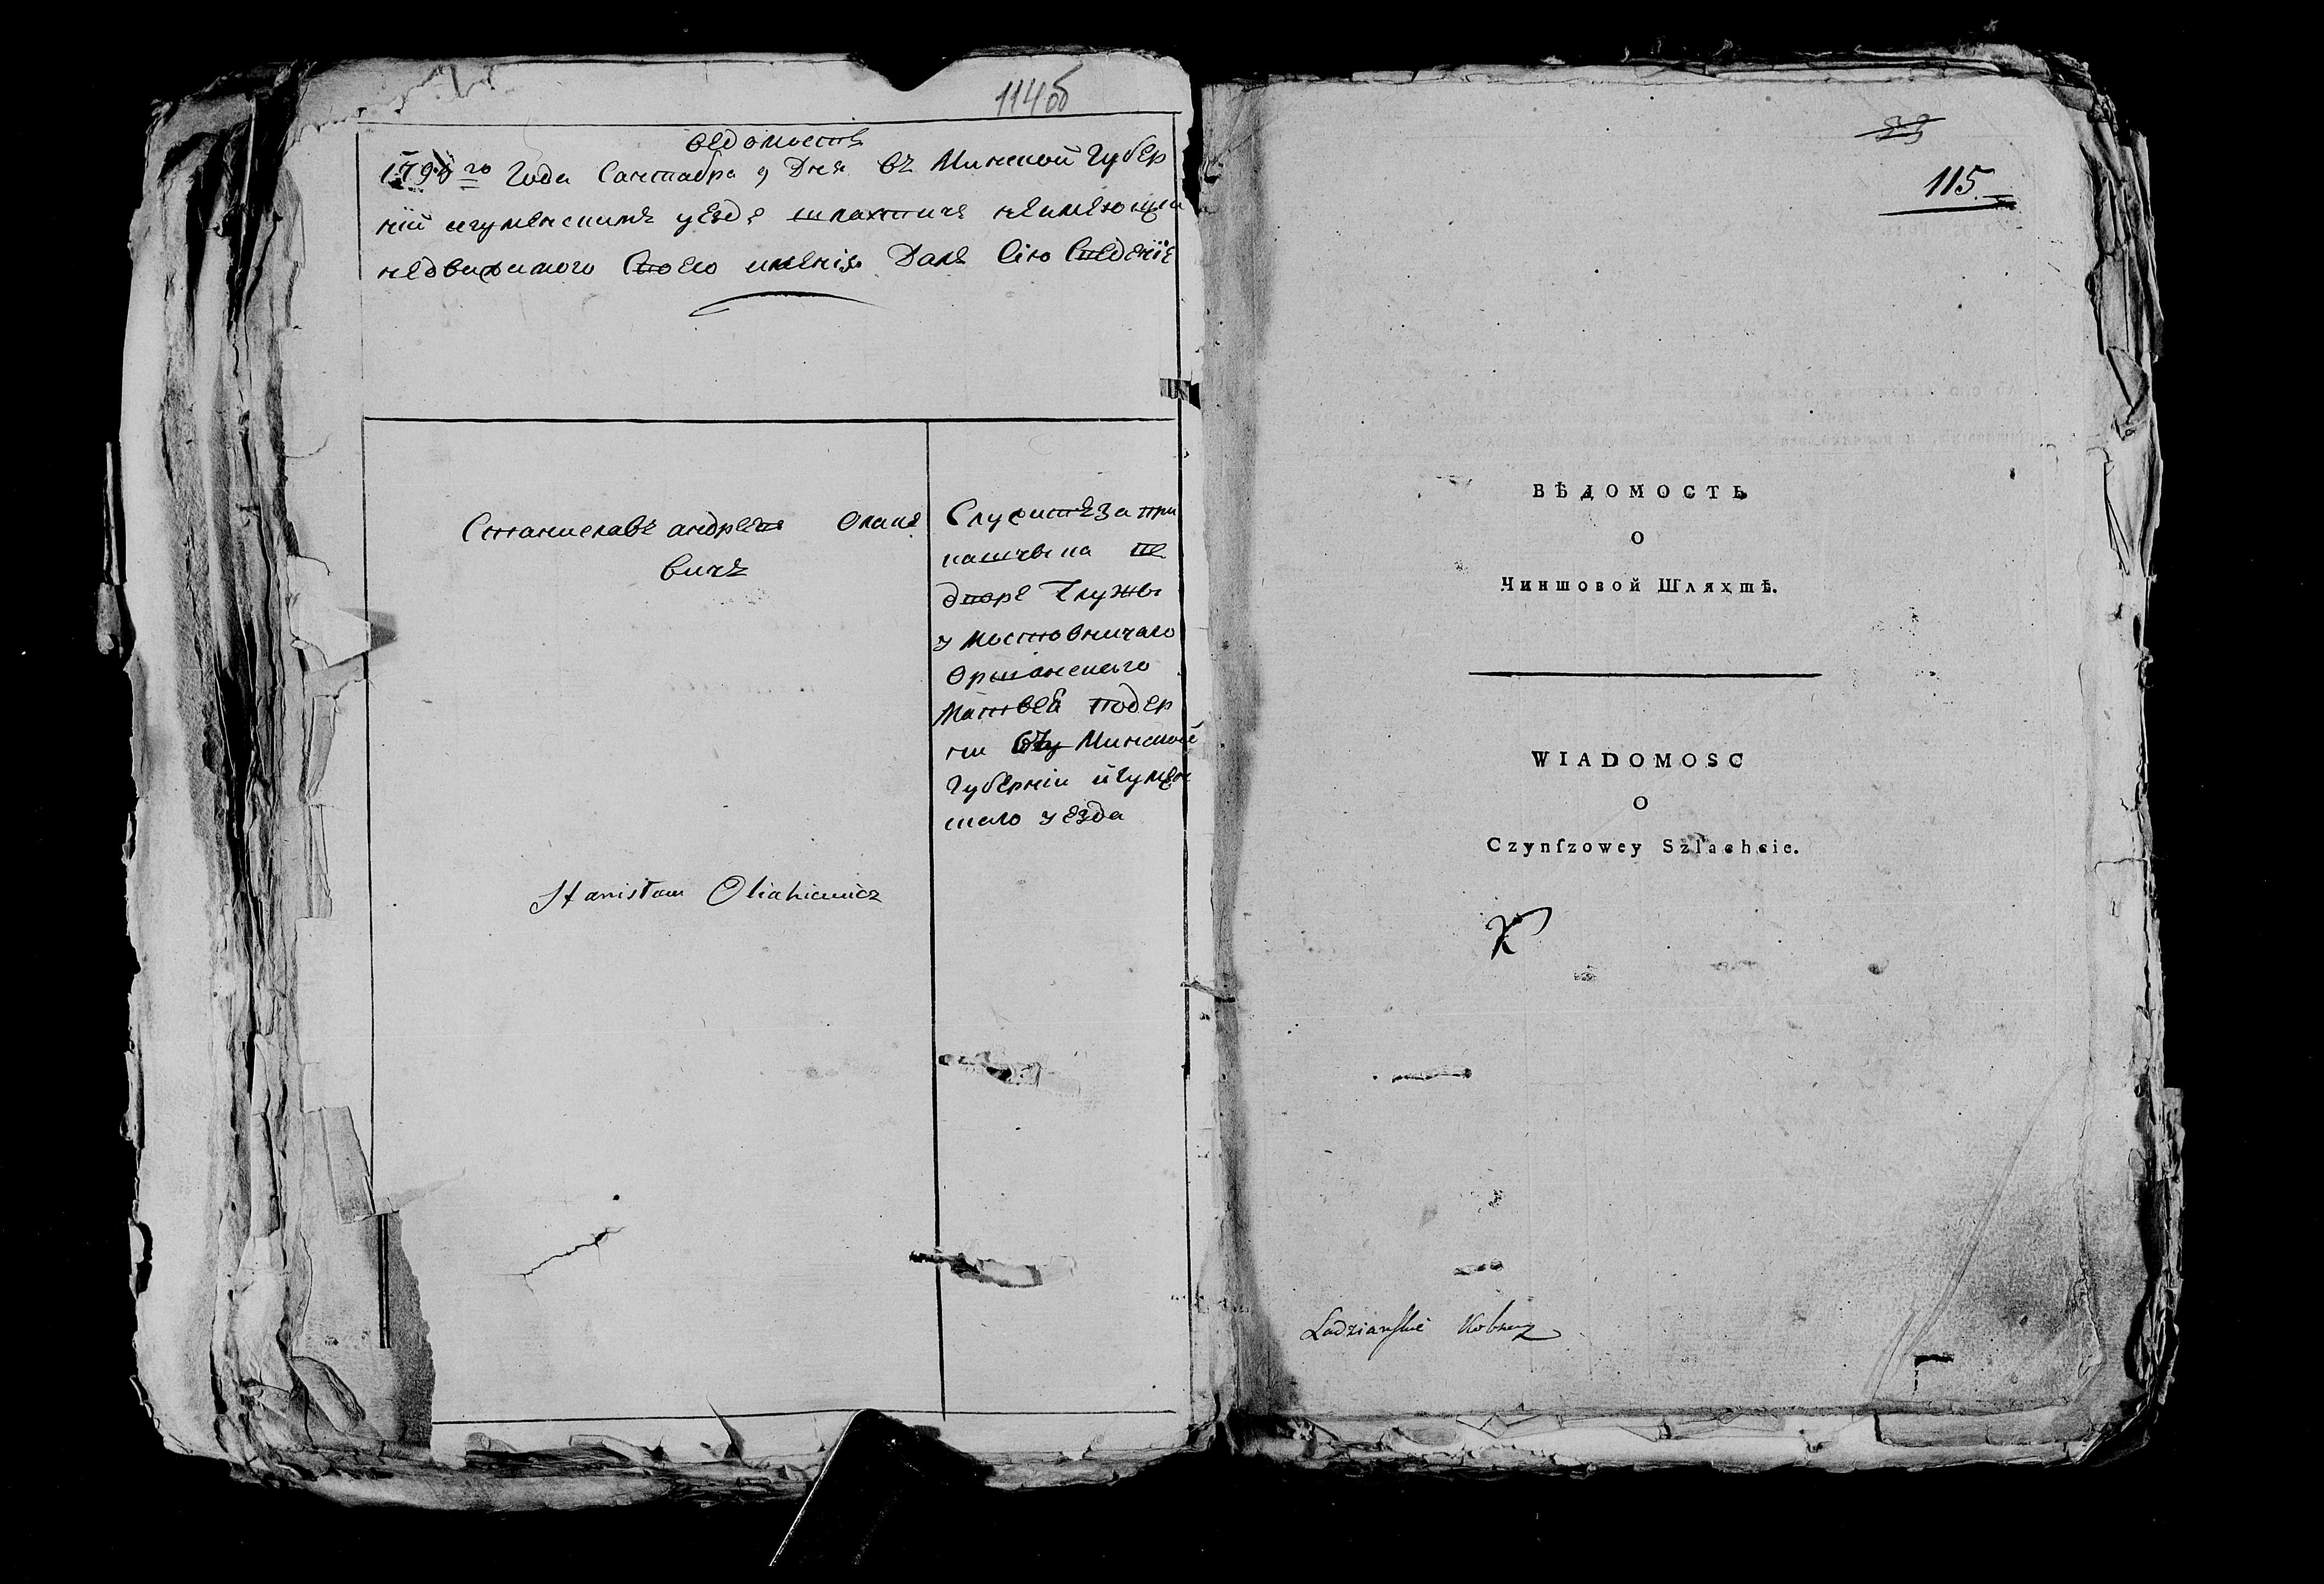 114об
ведомость
1795го Года Сентабра 9 Дня въ Минской Губер
ній игуменскимъ уезде шлахтичъ неимеющи
недвижимого своего имения Далъ Сію Сведеніе
Станиславъ андреевъ Оляке
вичъ
Служитъ за при
казчика
дворе Глужы
у мостовничаго
Оршанскаго
Матвея Подер
ни Минской
Губерніи игумен
скаго уезда
Stanisław Oliakiewicz
115.
ВѢДОМОСТЬ
О
Чиншовой Шляхтѣ.
WIADOMOSC
O
Czynſzowey Szlachcie.
Ladzianſkie